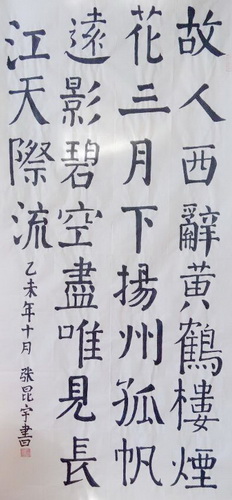 故人西辭黃鶴樓煙
花三月下揚州孤帆
遠影碧空盡唯見長
江天際流
乙未年十月 張昆宇書